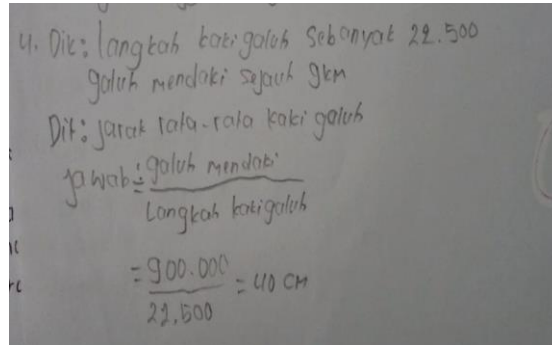 4. Dik: langkah kaki galuh sebanyak 22.500
galuh mendaki sejauh 9km
Dit: jarak rata-rata kaki galuh
jawab: galuh mendaki
Langkah kaki galuh
= 900.000
22.500
= 40 CM